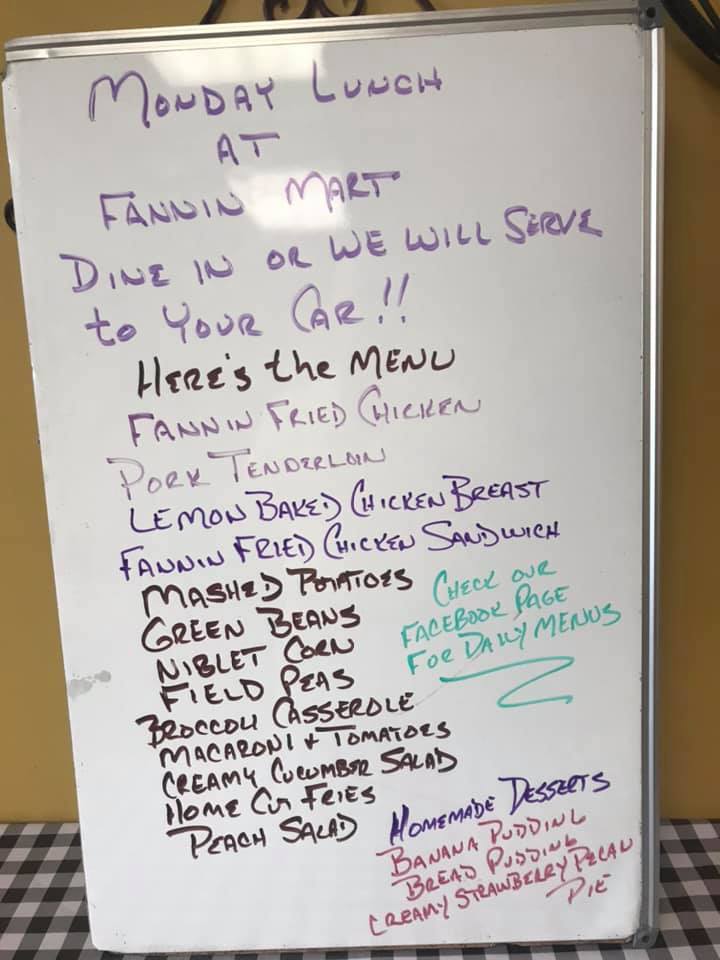 MONDAY LUNCH
AT
FANNIN MART
DINE IN OR WE WILL SERVE
to YOUR CAR!!
HERE'S the MENU
FANNIN FRIED CHICKEN
PORK TENDERLOIN
LEMON BAKED CHICKEN BREAST
FANNIN FRIED CHICKEN SANDWICH
MASHED POTATOES
GREEN BEANS
NIBLET CORN
FIELD PEAS
BROCCOLI CASSEROLE
MACARONI + TOMATOES
CREAMY CUCUMBER SALAD
HOME CUT FRIES
PEACH SALAD
CHECK OUR
FACEBOOK PAGE
FOR DAILY MENUS
HOMEMADE DESSERTS
BANANA PUDDING
BREAD PUDDING
CREAMY STRAWBERRY PECAN
PIE